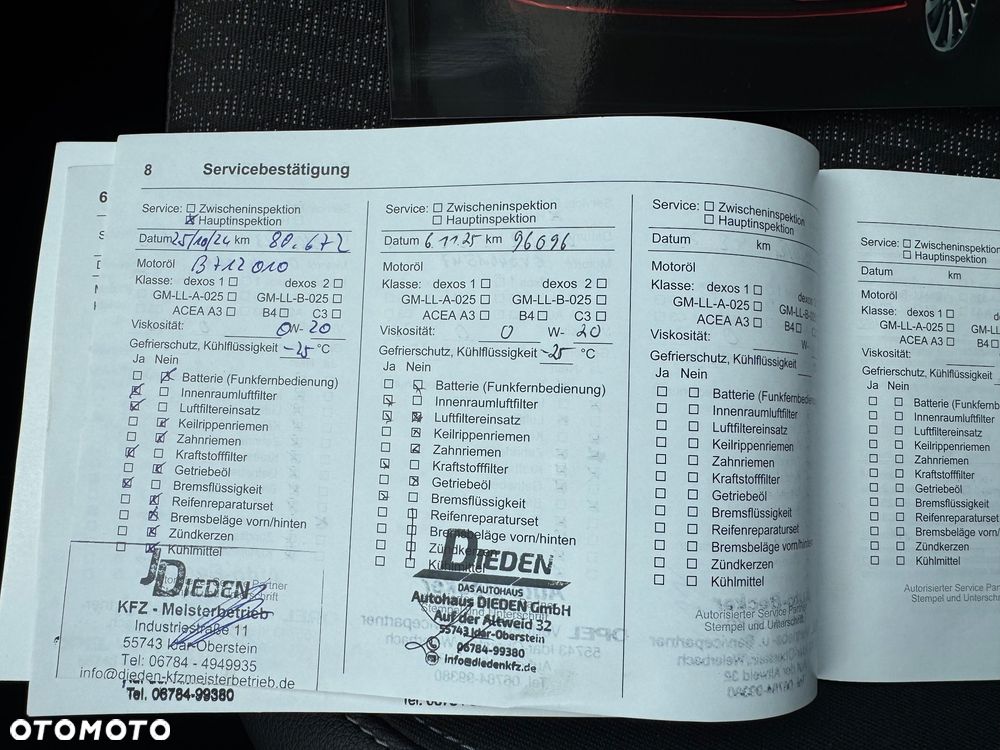 8 Servicebestätigung
Service: Zwischeninspektion
Hauptinspektion
Datum 25/10/24 km 80.672
Motoröl B712010
Klasse: dexos 1 dexos 2
GM-LL-A-025 GM-LL-B-025
ACEA A3 B4 C3
Viskosität: 0W-20
Gefrierschutz, Kühlflüssigkeit -25 °C
Ja Nein
Batterie (Funkfernbedienung)
Innenraumluftfilter
Luftfiltereinsatz
Keilrippenriemen
Zahnriemen
Kraftstofffilter
Getriebeöl
Bremsflüssigkeit
Reifenreparaturset
Bremsbeläge vorn/hinten
Zündkerzen
Kühlmittel
JDIEDEN
KFZ - Meisterbetrieb
Industriestraße 11
55743 Idar-Oberstein
Tel: 06784 - 4949935
info@dieden-kfzmeisterbetrieb.de
Tel. 06784-99380
Service: Zwischeninspektion
Hauptinspektion
Datum 6.11.25 km 96096
Motoröl
Klasse: dexos 1 dexos 2
GM-LL-A-025 GM-LL-B-025
ACEA A3 B4 C3
Viskosität: 0 W- 20
Gefrierschutz, Kühlflüssigkeit -25 °C
Ja Nein
Batterie (Funkfernbedienung)
Innenraumluftfilter
Luftfiltereinsatz
Keilrippenriemen
Zahnriemen
Kraftstofffilter
Getriebeöl
Bremsflüssigkeit
Reifenreparaturset
Bremsbeläge vorn/hinten
Zündkerzen
Kühlmittel
DIEDEN
DAS AUTOHAUS
Autohaus DIEDEN GmbH
Auf der Altweid 32
55743 Idar-Oberstein
06784-99380
info@diedenkfz.de
Service: Zwischeninspektion
Hauptinspektion
Datum km
Motoröl
Klasse: dexos 1
GM-LL-A-025 GM-LL-B-025
ACEA A3 B4
Viskosität: W-
Gefrierschutz, Kühlflüssigkeit
Ja Nein
Batterie (Funkfernbedie
Innenraumluftfilter
Luftfiltereinsatz
Keilrippenriemen
Zahnriemen
Kraftstofffilter
Getriebeöl
Bremsflüssigkeit
Reifenreparaturset
Bremsbeläge vorn/hinten
Zündkerzen
Kühlmittel
Autorisierter Service Partner
Stempel und Unterschrift
Service: Zwischeninspektion
Hauptinspektion
Datum km
Motoröl
Klasse: dexos 1
GM-LL-A-025
ACEA A3 B4
Viskosität:
Gefrierschutz, Kühlflüssigkeit
Ja Nein
Batterie (Funkfernb
Innenraumluftfilter
Luftfiltereinsatz
Keilrippenriemen
Zahnriemen
Kraftstofffilter
Getriebeöl
Bremsflüssigkeit
Reifenreparaturset
Bremsbeläge vorn/
Zündkerzen
Kühlmittel
Autorisierter Service Pa
Stempel und Unterschr
6
OTOMOTO